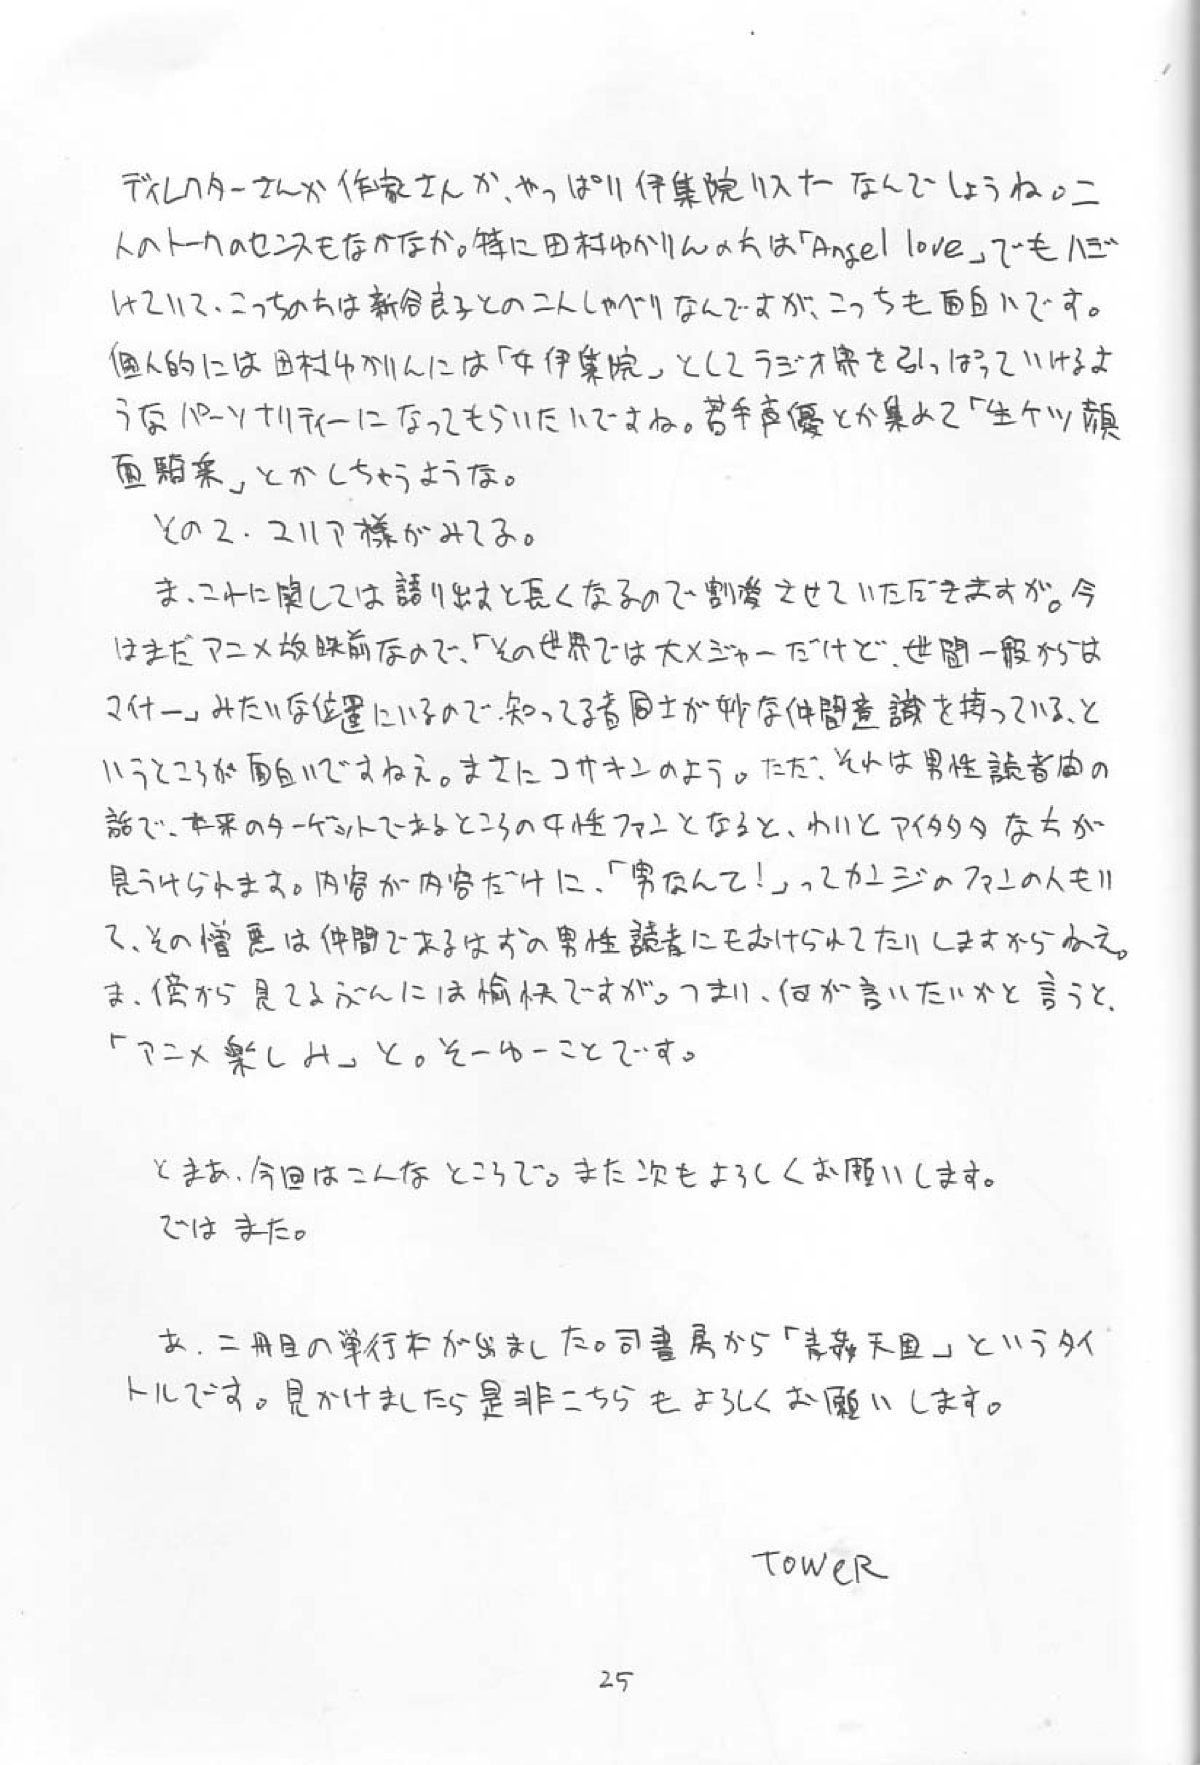 ディレクターさんか作家さんか、やっぱり伊集院リスナーなんでしょうね。二
人のトークのセンスもなかなか。特に田村ゆかりんの方は「Angel love」でもハジ
けていて、こっちの方は新谷良子との二人しゃべりなんですが、こっちも面白いです。
個人的には田村ゆかりんには「女伊集院」としてラジオ界を引っぱっていけるよ
うなパーソナリティーになってもらいたいですね。若手声優とか集めて「生ケツ顔
面騎乗」とかしちゃうような。
その2．マリア様がみてる。
ま、これに関しては語り出すと長くなるので割愛させていただきますが。今
はまだアニメ放映前なので、「その世界では大メジャーだけど、世間一般からは
マイナー」みたいな位置にいるので、知ってる者同士が妙な仲間意識を持っている、と
いうところが面白いですねえ。まさにコサキンのよう。ただ、それは男性読者由の
話で、本来のターゲットであるところの女性ファンとなると、わりとアイタタタな方が
見うけられます。内容が内容だけに、「男なんて！」ってカンジのファンの人もい
て、その憎悪は仲間であるはずの男性読者にもむけられてたりしますからねえ。
ま、傍から見てるぶんには愉快ですが。つまり、何が言いたいかと言うと、
「アニメ楽しみ」と。そーゆーことです。
とまあ、今回はこんなところで。また次もよろしくお願いします。
ではまた。
あ、二冊目の単行本が出ました。司書房から「青姦天国」というタイ
トルです。見かけましたら是非こちらもよろしくお願いします。
TOWeR
25